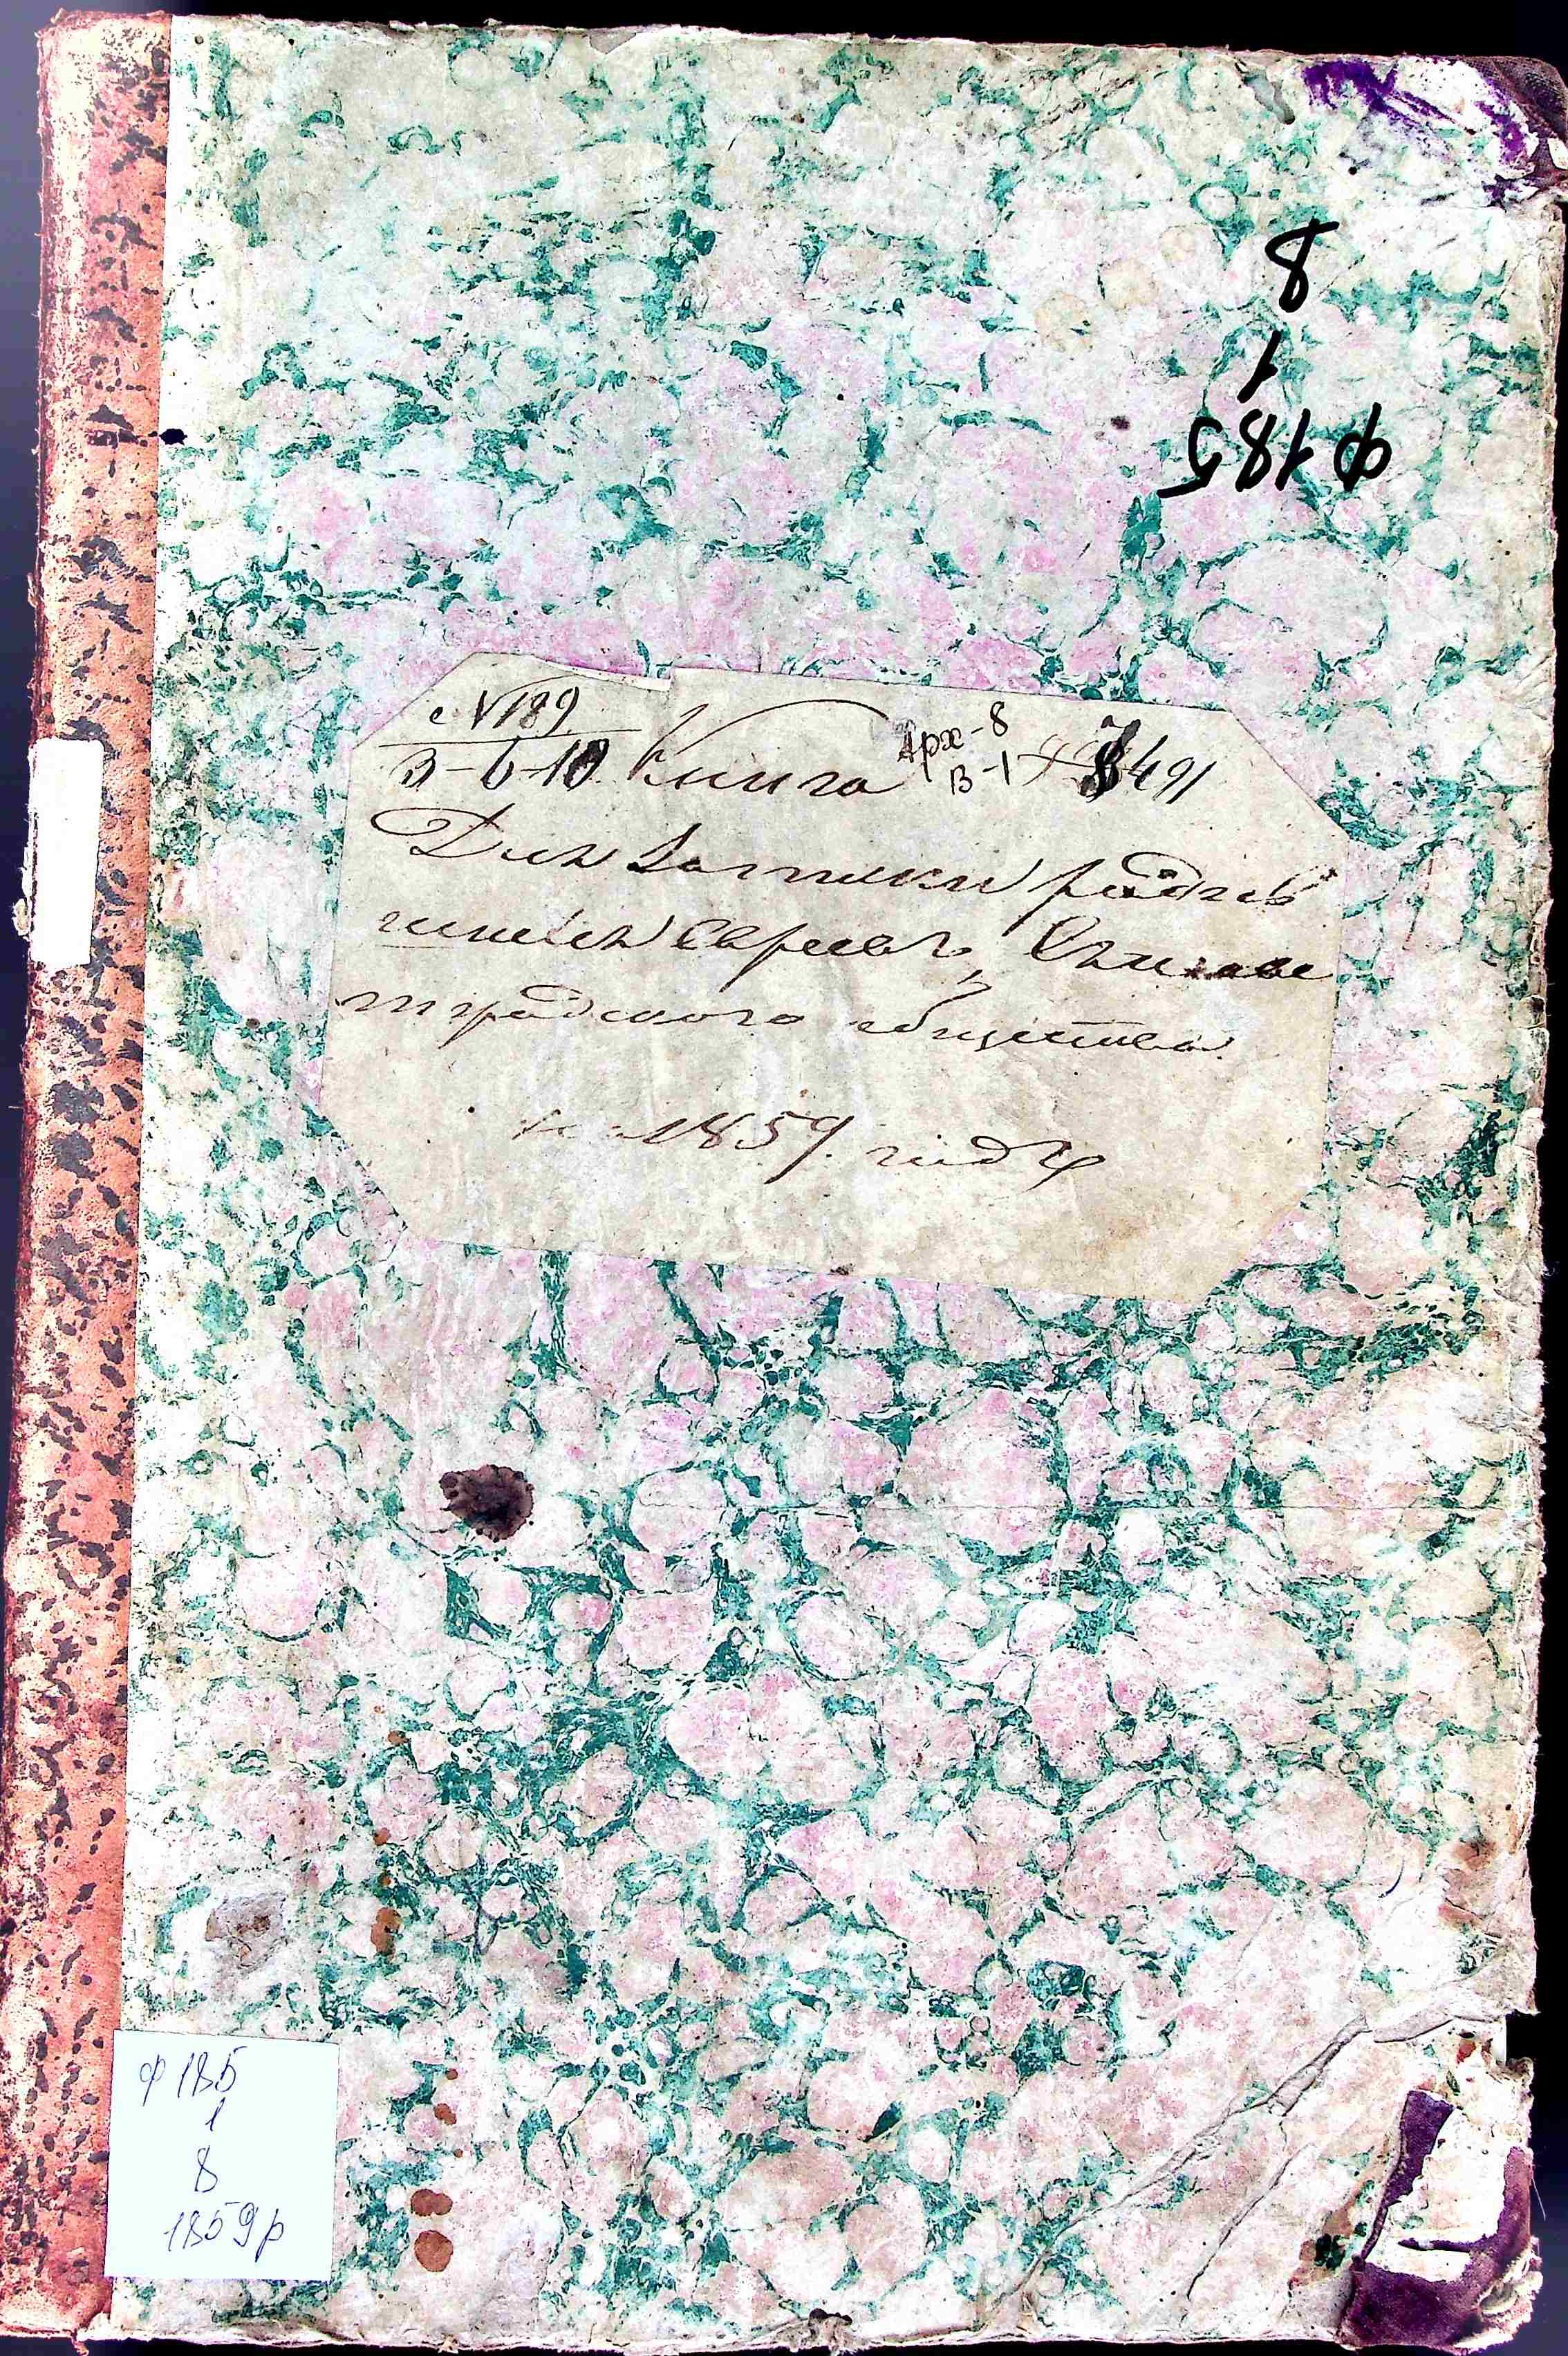 8
1
Ф185
№189
3-6-10 Книга Арх-8
В-1
491
Для записки родив
шихся Евреевъ,
градского общества.
на 1859. годъ
ф 185
1
8
1859р